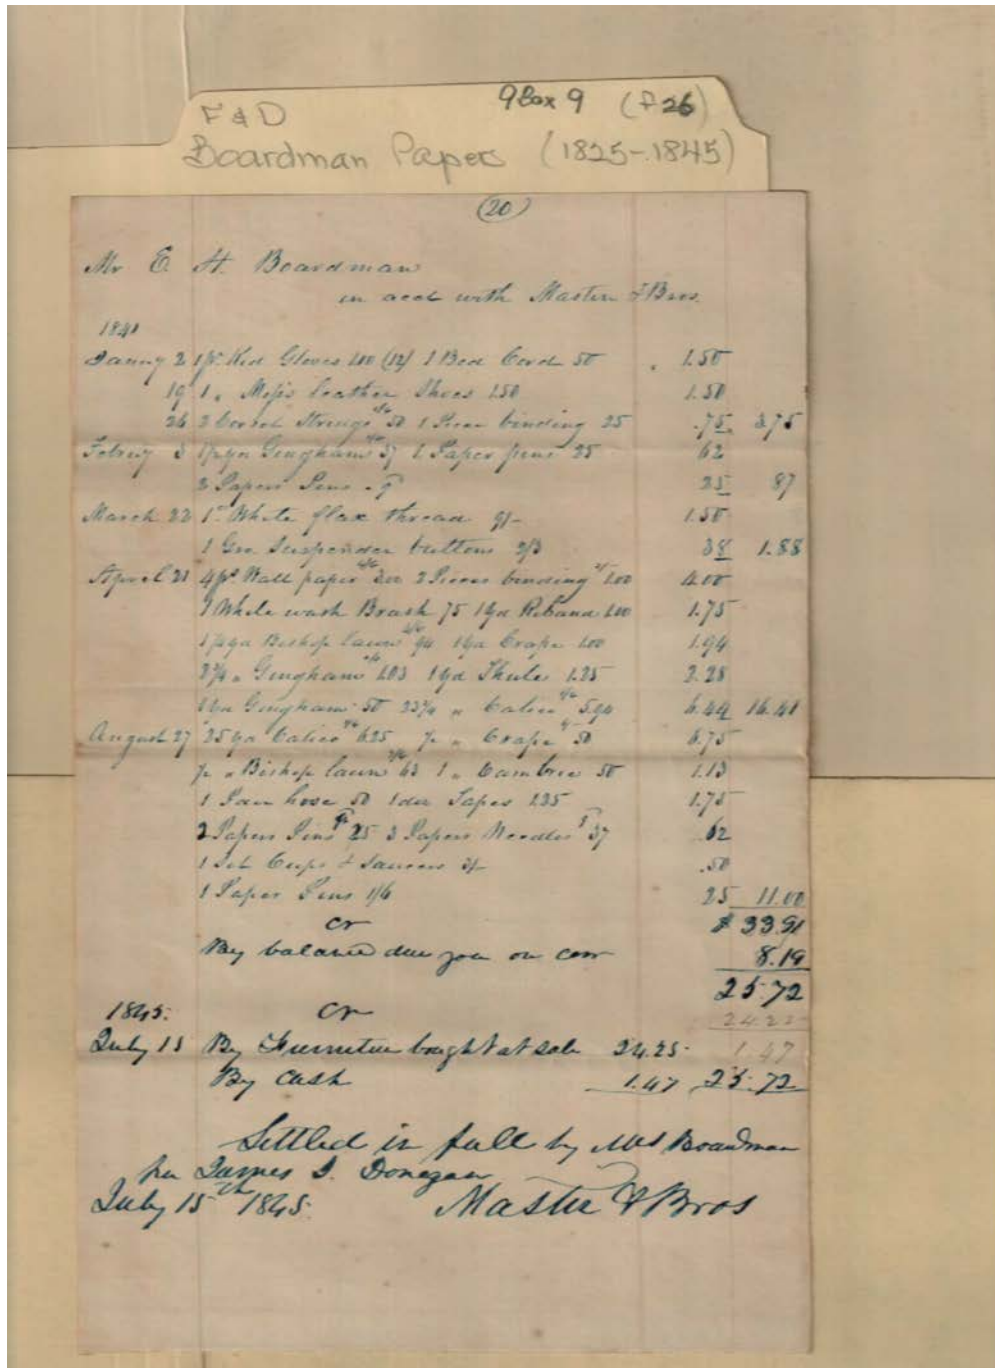 F & D
9 Box 9 (f 26)
Boardman Papers (1825-1845)
(20)
Mr E. H. Boardman
in acct with Mastin & Bros.
1841
2 1 pr. Kid Gloves 1.00 (12) 1 Bed Cord 50 1.50
19 1 " leather Shoes 1.50 1.50
26 2 Corset Strings 50 1 Piece binding 25 .75 3.75
3 Gingham 37 1 Paper pins 25 62
2 Papers Pins 25 87
March 22 1 White flax thread 9/- 1.50
1 Gro Suspender buttons 2/3 38 1.88
April 21 4 ps Wall paper 3.00 2 Pieces binding 1.00 4.00
1 White wash Brush 75 1 yd Riband 1.00 1.75
Bishop lawn 94 1 yd Crape 1.00 1.94
2 3/4 " Gingham 1.03 1 yd 1.25 2.28
1 yd Gingham 50 23 3/4 " Calico 5.94 6.44 16.41
August 27 25 yd Calico 6.25 " Crape 50 6.75
" Bishop lawn 63 1 " Cambric 50 1.13
1 Pair hose 50 1 doz Tapes 1.25 1.75
2 Papers Pins 25 3 Papers Needles 37 .62
1 Set Cups & Saucers .50
1 Paper Pins 1/6 25 11.00
Cr $ 33.91
By balance due you on 8.19
25.72
1845. Cr 24.25
July 15 By Furniture bought at sale 24.25 1.47
By Cash 1.47 25.72
Settled in full by Mrs Boardman
per James J. Donegan
July 15th 1845. Mastin & Bros